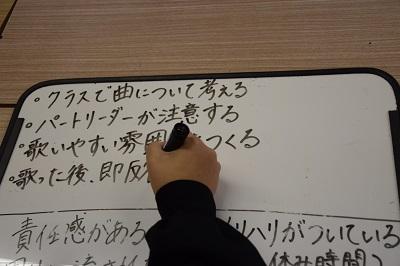 ・クラスで曲について考える
・パートリーダーが注意する
・歌いやすい雰囲 つくる
・歌った後、即反
責任感がある リハリがついている
休み時間)